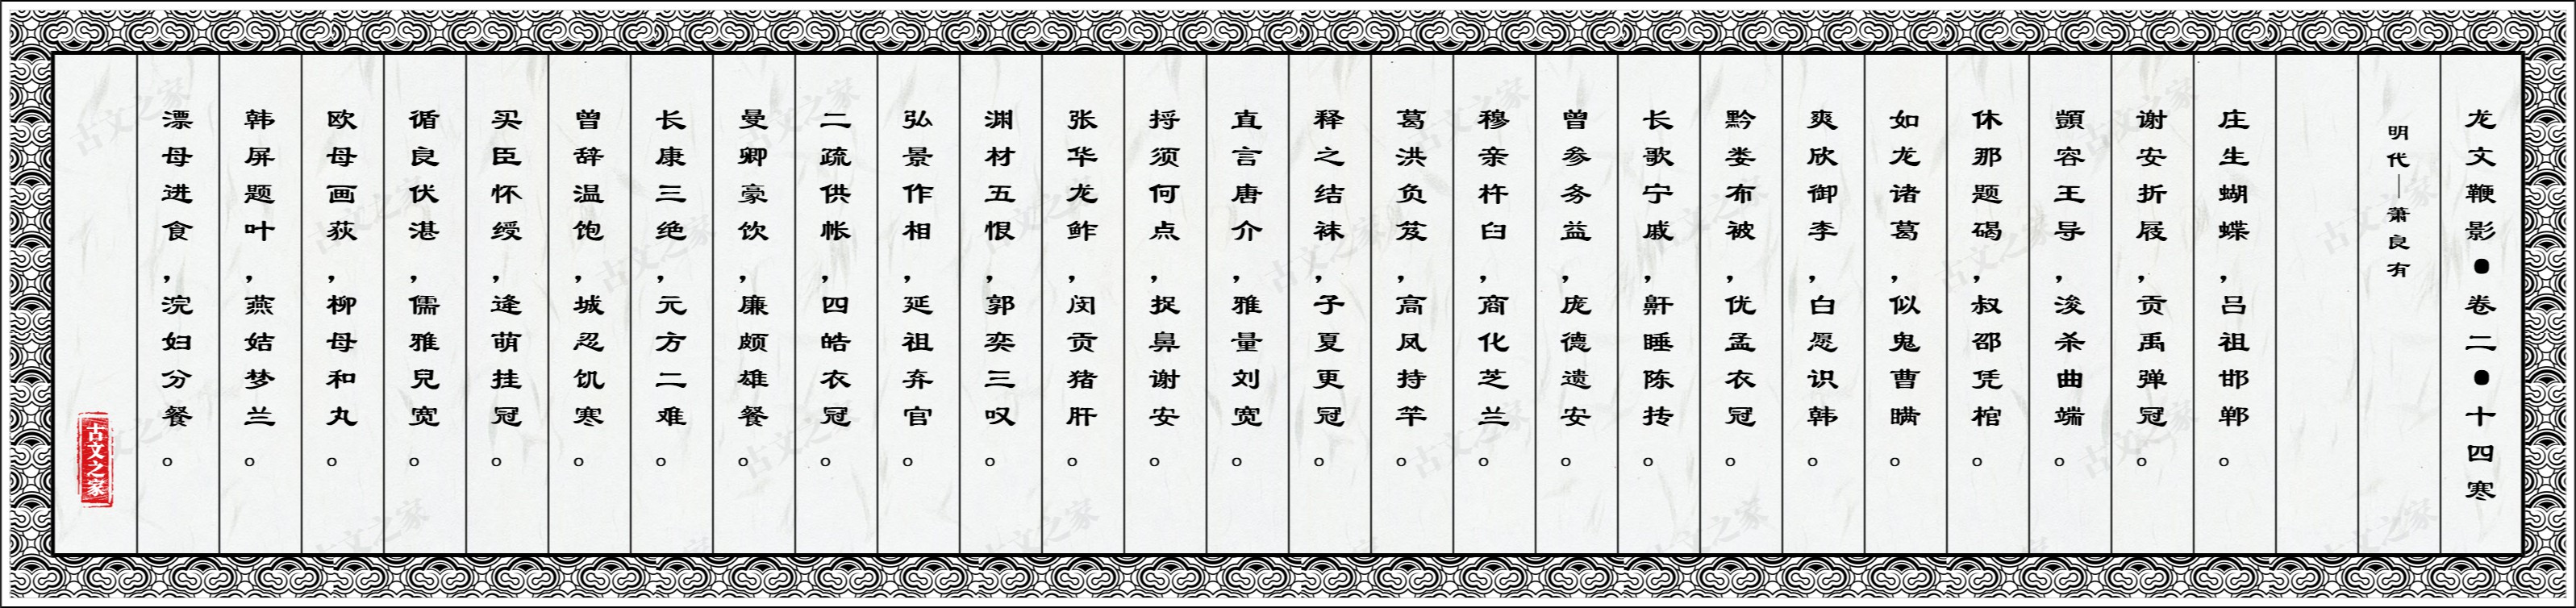 龙文鞭影●卷二●十四寒
明代—萧良有
庄生蝴蝶，吕祖邯郸。
谢安折屐，贡禹弹冠。
顗容王导，浚杀曲端。
休那题碣，叔邵凭棺。
如龙诸葛，似鬼曹瞒。
爽欣御李，白愿识韩。
黔娄布被，优孟衣冠。
长歌宁戚，鼾睡陈抟。
曾参务益，庞德遗安。
穆亲杵臼，商化芝兰。
葛洪负笈，高凤持竿。
释之结袜，子夏更冠。
直言唐介，雅量刘宽。
捋须何点，捉鼻谢安。
张华龙鲊，闵贡猪肝。
渊材五恨，郭奕三叹。
弘景作相，延祖弃官。
二疏供帐，四皓衣冠。
曼卿豪饮，廉颇雄餐。
长康三绝，元方二难。
曾辞温饱，城忍饥寒。
买臣怀绶，逄萌挂冠。
循良伏湛，儒雅兒宽。
欧母画荻，柳母和丸。
韩屏题叶，燕姞梦兰。
漂母进食，浣妇分餐。
古文之家